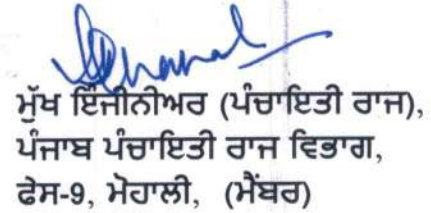 ਮੁੱਖ ਇੰਜੀਨੀਅਰ (ਪੰਚਾਇਤੀ ਰਾਜ),
ਪੰਜਾਬ ਪੰਚਾਇਤੀ ਰਾਜ ਵਿਭਾਗ,
ਫੇਸ-9, ਮੋਹਾਲੀ, (ਮੈਂਬਰ)